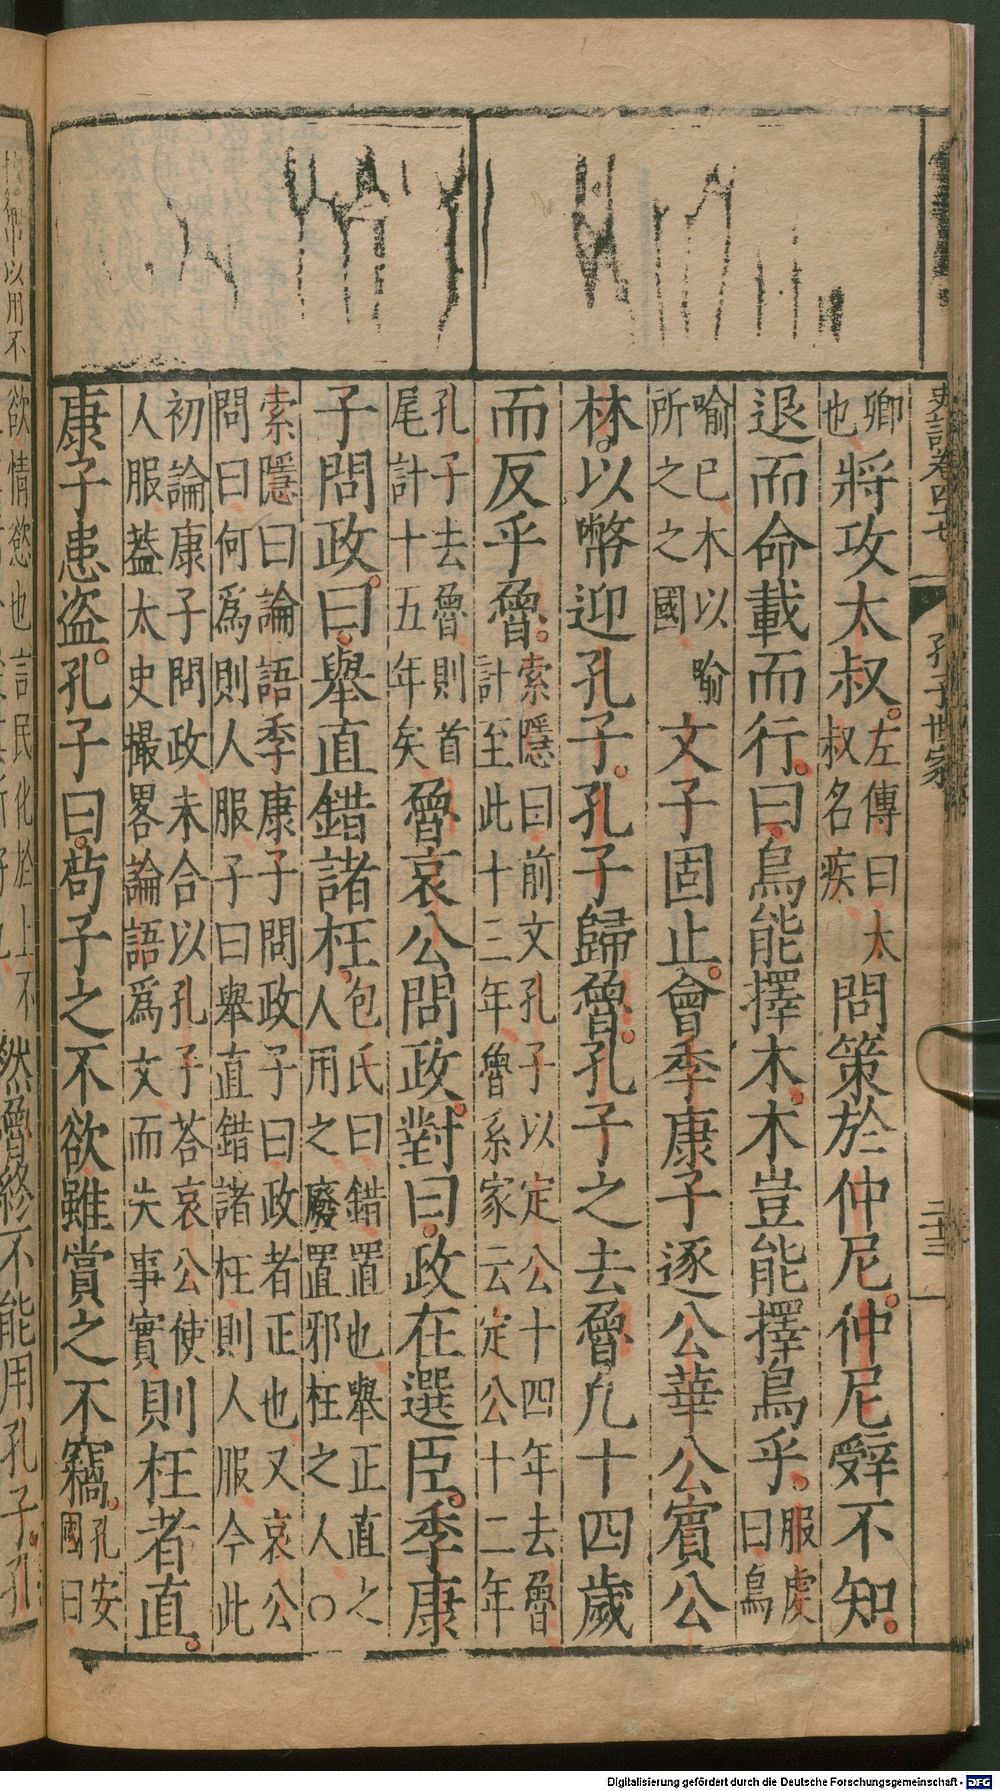 史記卷四七 孔子世家 二十三
卿也將攻太叔。左傳曰太叔名疾問策於仲尼。仲尼辭不知。
退而命載而行。曰。鳥能擇木。木豈能擇鳥乎。服虔曰鳥
喻已木以喻所之之國文子固止。會季康子逐公華公賓公
林。以幣迎孔子。孔子歸魯。孔子之去魯凡十四歲
而反乎魯。索隱曰前文孔子以定公十四年去魯計至此十三年魯系家云定公十二年
孔子去魯則首尾計十五年矣魯哀公問政。對曰。政在選臣。季康
子問政。曰。舉直錯諸枉。包氏曰錯置也舉正直之人用之廢置邪枉之人○
索隱曰論語季康子問政子曰政者正也又哀公問曰何爲則人服子曰舉直錯諸枉則人服今此
初論康子問政未合以孔子荅哀公使人服蓋太史撮畧論語爲文而失事實則枉者直。
康子患盜。孔子曰。苟子之不欲雖賞之不竊。孔安國曰
欲情慾也言民化於上不然魯終不能用孔子。孔
Digitalisierung gefördert durch die Deutsche Forschungsgemeinschaft - DFG